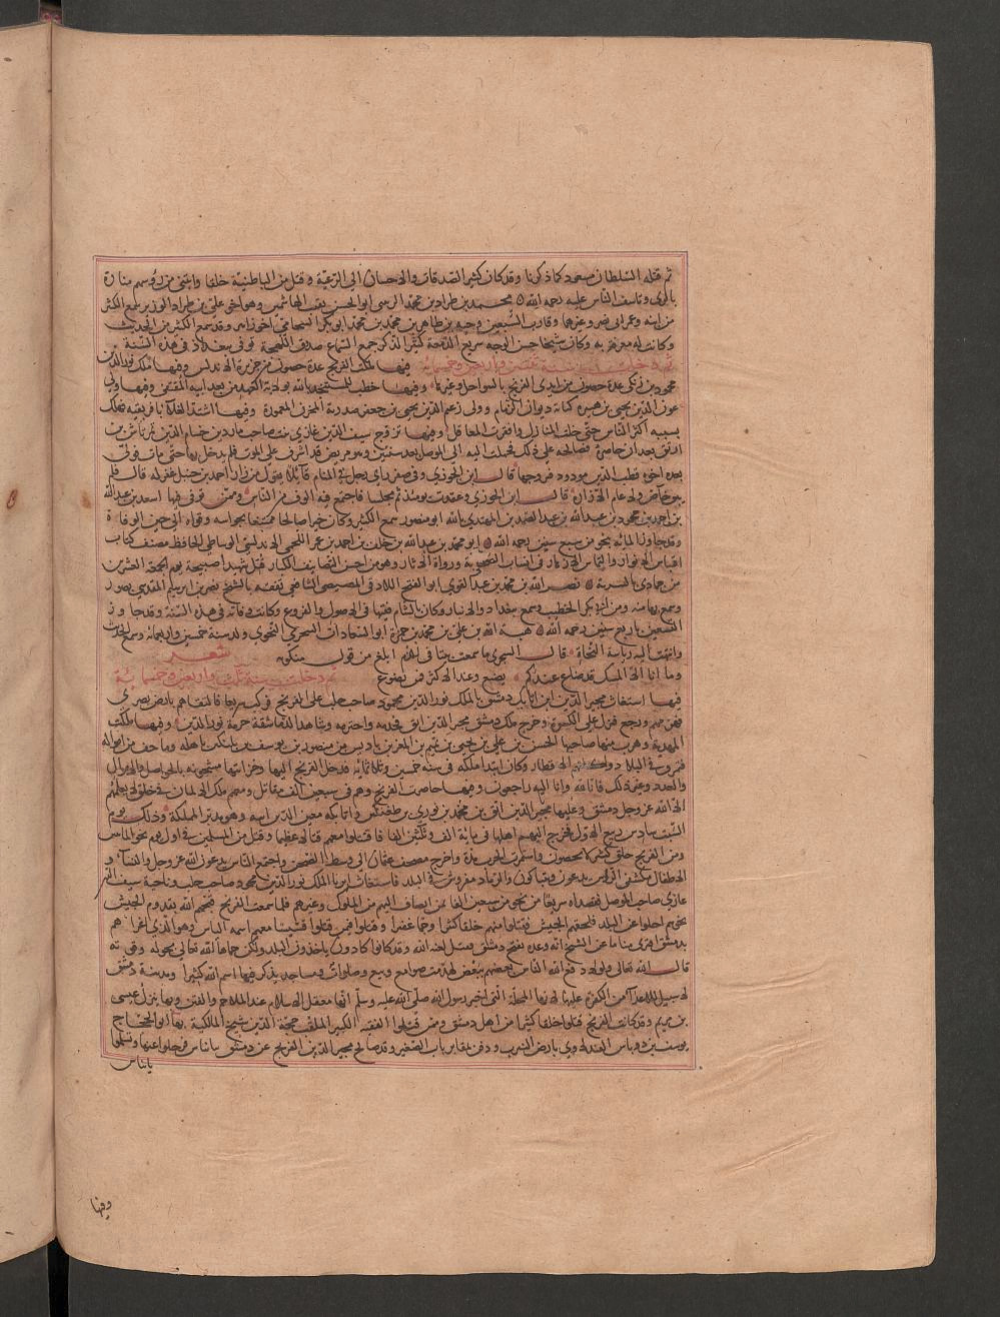 ثم قتله السلطان مسعود كما ذكرنا وقد كان كثير الصدقات والاحسان الى الرعية وقتل من الباطنية خلقا وابتنى من رؤسهم منارة
بالرى وتاسف الناس عليه رحمه الله محمد بن طراد بن محمد الزينبى ابو الحسن نقيب الهاشميين وهو اخى على بن طراد الوزير سمع الكثير
من ابيه وعمه ابى نصر وغيرهما وقارب السبعين وجيه بن طاهر بن محمد بن محمد ابو بكر الشحامى اخو زاهر وقد سمع الكثير من الحديث
وكانت له معرفة به وكان شيخا حسن الوجه سريع الدمعة كثير الذكر جمع السماع صدق اللهجة توفى ببغداد فى هذه السنة
ثم دخلت سنة ثنتين واربعين وخمسمائة فيها ملكت الفرنج عدة حصون من جزيرة الاندلس وفيها ملك نور الدين
محمود بن زنكى عدة حصون من ايدى الفرنج بالسواحل وغيرها وفيها خطب للمستنجد بالله بولاية العهد من بعد ابيه المقتفى وفيها ولى
عون الدين يحيى بن هبيرة كتابة ديوان الزمام وولى زعيم الدين يحيى بن جعفر صدرية المخزن المعمورة وفيها اشتد الغلاء بافريقية فهلك
بسببه اكثر الناس حتى خلت المنازل واقفرت المعاقل وفيها تزوج سيف الدين غازى بنت صاحب ماردين حسام الدين تمرتاش بن
ارتق بعد ان حاصره فصالحه على ذلك فحملت اليه الى الموصل بعد سنتين وهو مريض قد اشرف على الموت فلم يدخل بها حتى مات فولى
بعده اخوه قطب الدين مودود فتزوجها قال ابن الجوزى وفى صفر راى رجل فى المنام قائلا يقول من زار احمد بن حنبل غفر له قال فلم
يبق خاص ولا عام الا زاره قال ابن الجوزى وعقدت يومئذ ثم مجلسا فاجتمع فيه الوف من الناس وممن توفى فيها اسعد بن عبد الله
بن احمد بن محمود بن عبد الله بن عبد الصمد بن المهتدى بالله ابو منصور سمع الكثير وكان خيرا صالحا ممتعا بحواسه وقواه الى حين الوفاة
وقد جاوز المائة بنحو من سبع سنين رحمه الله ابو محمد بن عبد الله بن خلف بن احمد بن عمر اللخمى الاندلسى الرشاطى الحافظ مصنف كتاب
اقتباس الانوار والتماس الازهار فى انساب الصحابة ورواة الاثار وهو من احسن التصانيف الكبار قتل شهيدا صبيحة يوم الجمعة العشرين
من جمادى بالمرية نصر الله بن محمد بن عبد القوى ابو الفتح اللاذقى المصيصى الشافعى تفقه بالشيخ نصر بن ابراهيم المقدسى بصور
وسمع بها منه ومن ابى بكر الخطيب وسمع ببغداد والانبار وكان الشار فيها فى الاصول والفروع وكانت وفاته فى هذه السنة وقد جاوز
التسعين باربع سنين رحمه الله هبة الله بن على بن محمد بن حمزة ابو السعادات الشجرى النحوى ولد سنة خمسين واربعمائة وسمع الحديث
وانتهت اليه رياسة النحاة قال الشجرى ما سمعت بيتا فى الذم ابلغ من قول مسكويه شعر
وما انا الا المسك قد ضاع عندكم يضيع وعند الاكثرين يضوع ثم دخلت سنة ثلاث واربعين وخمسمائة
فيها استغاث مجير الدين ابن اتابك دمشق بالملك نور الدين محمود صاحب حلب على الفرنج فركب سريعا فالتقاهم بارض بصرى
فهزمهم ورجع فنزل على الكسوة وخرج ملك دمشق مجير الدين ابق فخدمه واحترمه وشاهد الدماشقة حرمة نور الدين وفيها ملكت
المهدية وهرب منها صاحبها الحسن بن على بن يحيى بن تميم بن المعز بن باديس بن منصور بن يوسف بن بلتكين باهله وما خف من امواله
فتمزق فى البلاد الاقطار وكان ابتدا ملكه فى سنة خمسين وثلاثمائة فدخل الفرنج اليها وخزائنها مشحونة بالحواصل والاموال
والعدد وغير ذلك فانا لله وانا اليه راجعون وفيها حاصرت الفرنج وهم فى سبعين الف مقاتل ومعهم ملك الالمان فى خلق لا يعلمهم
الا الله عز وجل دمشق وعليها مجير الدين ابق بن محمد بن بورى بن طغتكين واتابكه معين الدين انر وهو مدبر المملكة وذلك يوم
السبت سادس ربيع الاول فخرج اليهم اهلها فى مائة الف وثلثين الفا فاقتتلوا معهم قتالا عظيما وقتل من المسلمين فى اول يوم نحو المائتين
ومن الفرنج خلق كثير لا يحصون واستمرت الحرب مدة واخرج مصحف عثمان الى وسط الصحن واجتمع الناس يدعون الله عز وجل والنساء و
الاطفال مكشفى الرؤس يدعون ويتباكون والرماد مفروش فى البلد فاستغاث ابق بالملك نور الدين محمود صاحب حلب وباخيه سيف الدين
غازى صاحب الموصل فقصداه سريعا من نحو من سبعين الفا ممن انضاف اليهم من الملوك وغيرهم فلما سمعت الفرنج بقدوم الجيش
تحولوا عن البلد فلحقهم الجيش فقتلوا منهم خلقا كثيرا وجما غفيرا وقتلوا فيمن قتلوا قسيسا معهم اسمه الياس وهو الذى اغراهم
بدمشق افترى مناما عن المسيح انه وعده بفتح دمشق فقتل لعنه الله وقد كانوا كادوا ياخذون البلد ولكن حماها الله تعالى بحوله وقوته
قال الله تعالى ولولا دفع الله الناس بعضهم ببعض لهدمت صوامع وبيع وصلوات ومساجد يذكر فيها اسم الله كثيرا ومدينة دمشق
لا سبيل للاعداء من الكفرة عليها لانها المحلة التى اخبر رسول الله صلى الله عليه وسلم انها معقل الاسلام عند الملاحم والفتن وبها ينزل عيسى
بن مريم وقد كانت الفرنج قتلوا خلقا كثيرا من اهل دمشق وممن قتلوا الفقيه الكبير الملقب حجة الدين شيخ المالكية بها ابو الحجاج
يوسف بن دوناس الفندلاوى بارض النيرب ودفن بمقابر باب الصغير وقد صالح مجير الدين الفرنج عن دمشق بانياس فرحلوا عنها وتسلموا
بانياس
وفيها